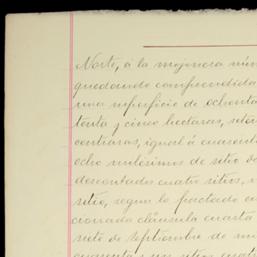 Norte, á la mojonera núm
quedando comprendida
una superficie de ochenta
tenta y cinco hectáras, seten
centiaras, igual á cuarenta
ocho milésimos de sitio de
descontados cuatro sitios, v
sitio, segun lo pactado en
cionada cláusula cuarta
siete de Septiembre de mi
cuarenta y un sitios cuatro